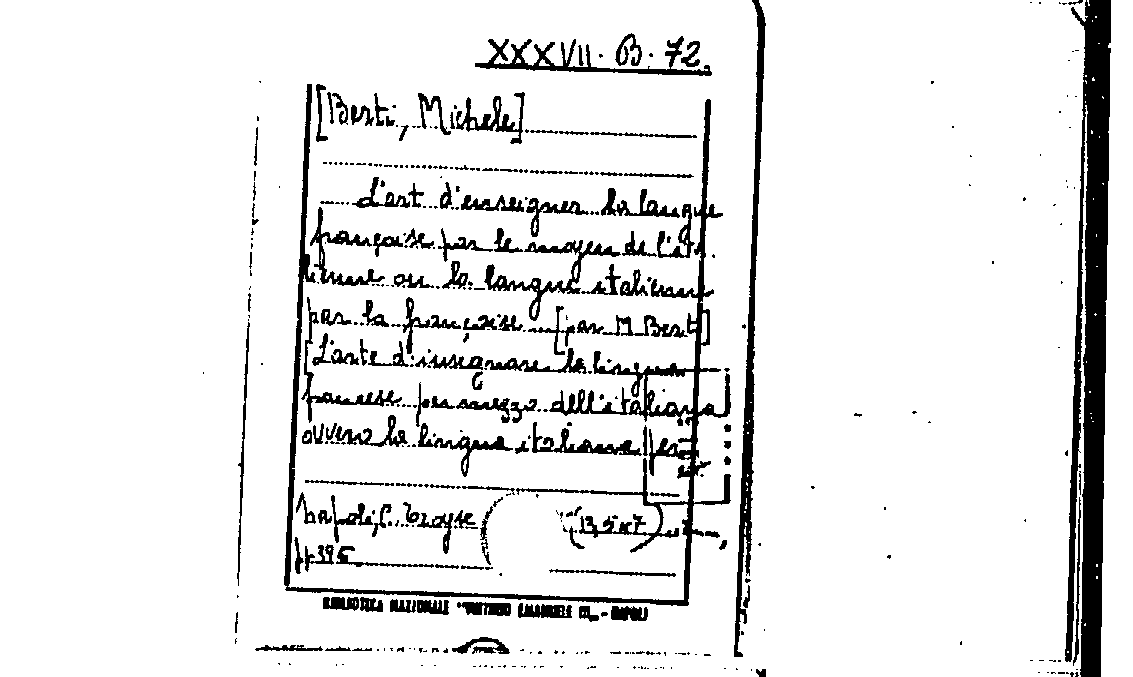 XXXVII. B. 72.
[Berti, Michele]
L'art d'enseigner la langue
française par le moyen de l'ita
lienne ou la langue italienne
par la française [par M Bert]
[L'arte d'insegnare la lingua
francese per mezzo dell'italiana
ovvero la lingua italiana per
Napoli, C. Troyse (13,5x7
pp 395
BIBLIOTECA NAZIONALE "VITTORIO EMANUELE III" - NAPOLI